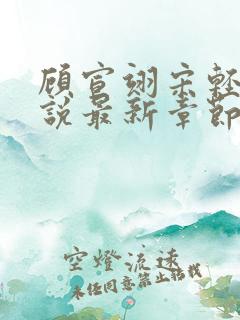 顾宣翊宋轻
说最新章节
空燈流遠
未经同意禁止转载